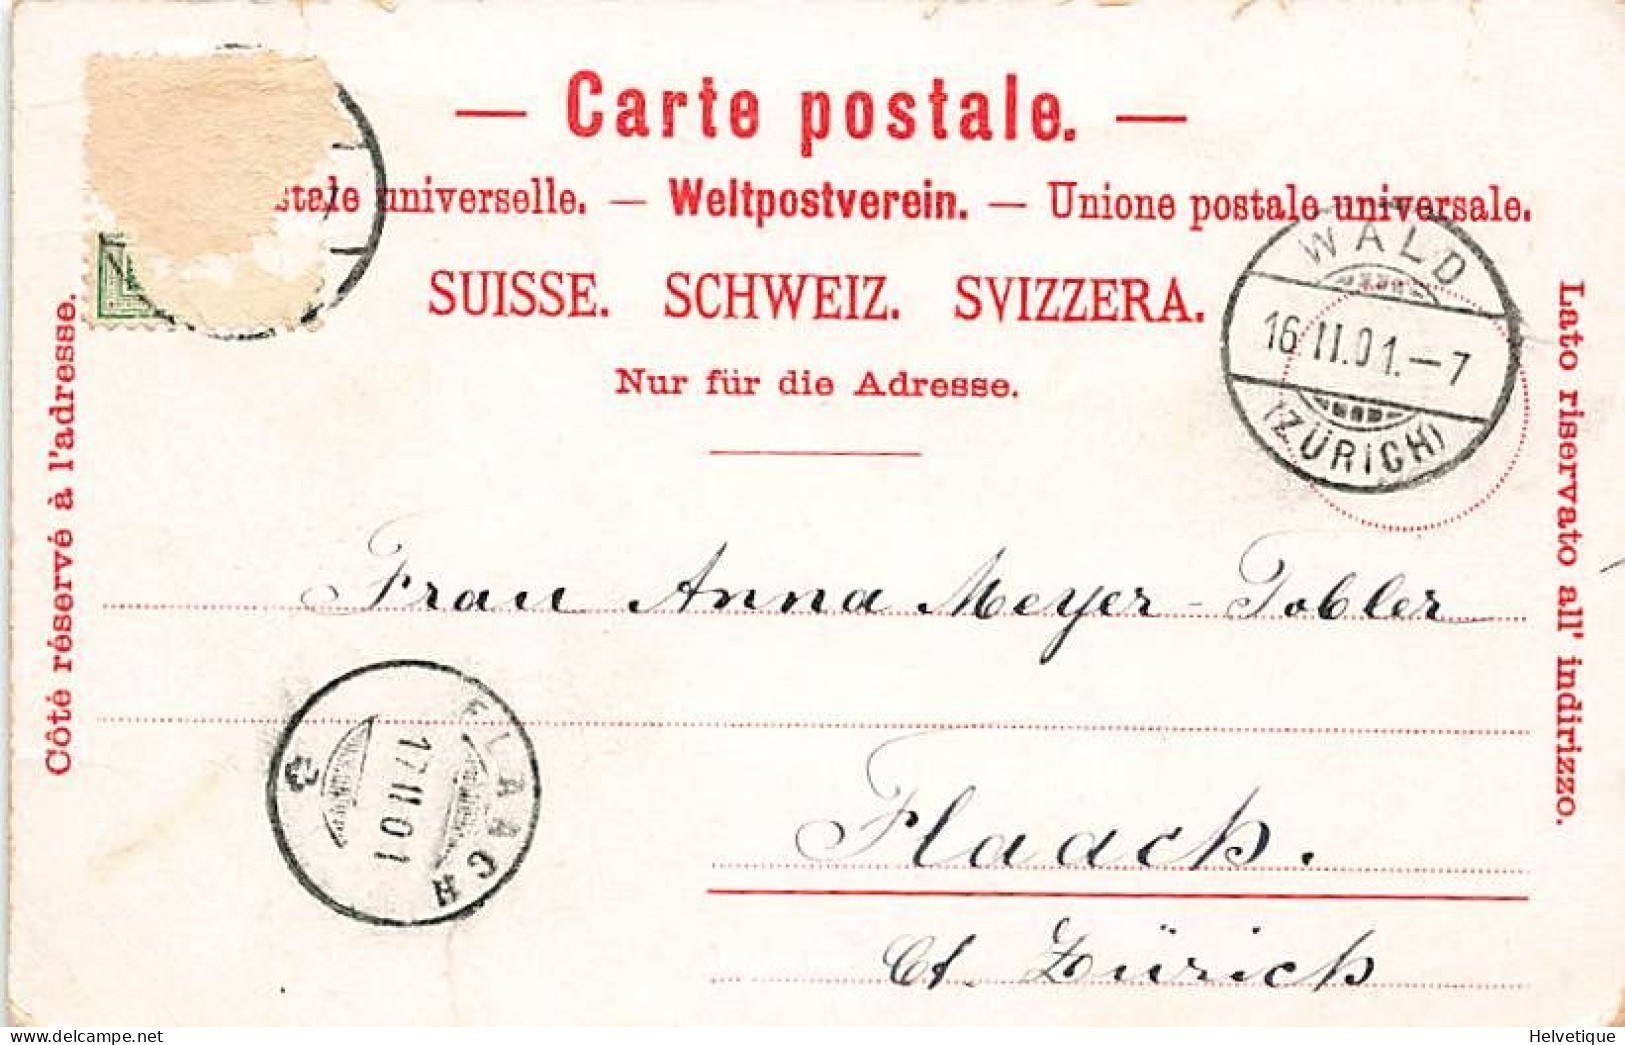 — Carte postale. —
stale universelle. — Weltpostverein. — Unione postale universale.
SUISSE. SCHWEIZ. SVIZZERA.
Nur für die Adresse.
Côté réservé à l'adresse.
Lato riservato all' indirizzo.
WALD
16 II.01.—7
(ZÜRICH)
Frau Anna Meyer-Tobler
FLAACH
17 II 01
Flaach.
Ct. Zürich
www.delcampe.net
Helvetique